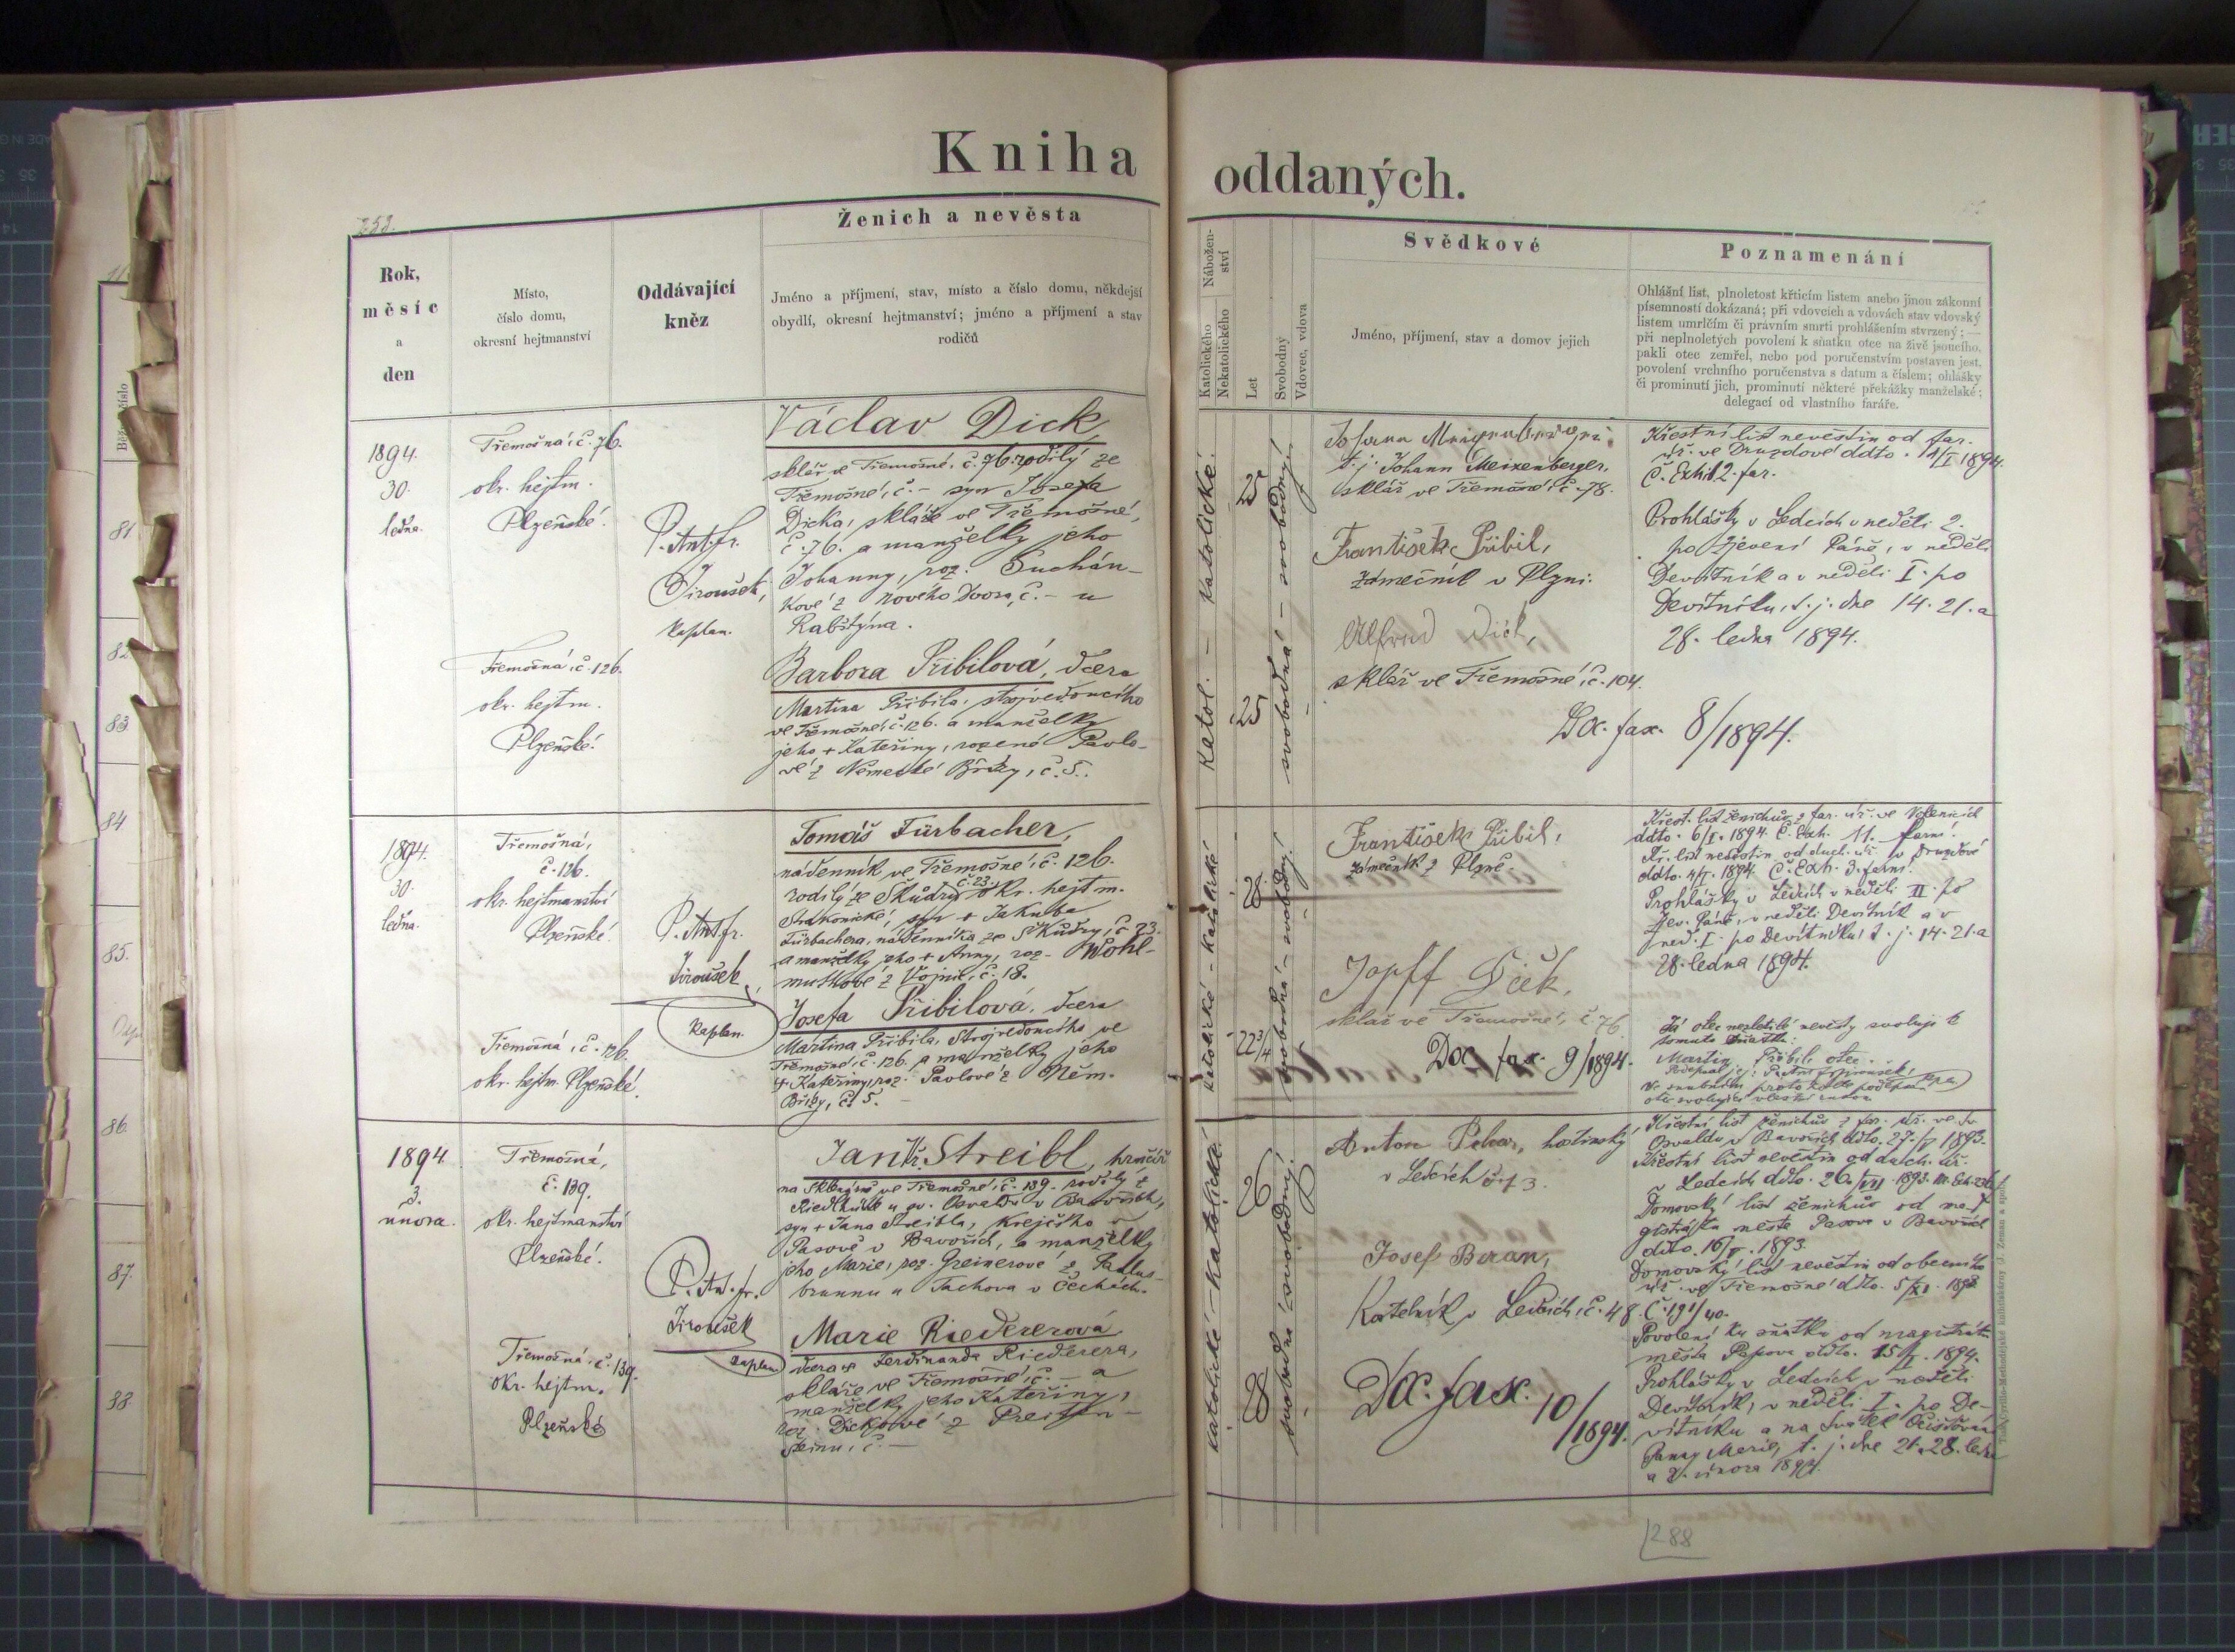 Kniha
oddaných.
252.
Rok,
měsíc
a
den
Místo,
číslo domu,
okresní hejtmanství
Oddávající
kněz
Ženich a nevěsta
Jméno a příjmení, stav, místo a číslo domu, někdejší
obydlí, okresní hejtmanství; jméno a příjmení a stav
rodičů
1894.
30.
ledna.
Třemošná, č. 76.
okr. hejtm.
Plzeňské.
P. Ant. fr.
Jiroušek,
kaplan.
Václav Dick,
sklář ve Třemošné, č. 76. rodilý ze
Třemošné, č. – syn Josefa
Dicka, skláře ve Třemošné,
č. 76. a manželky jeho
Johanny, roz. Suchán-
kové z nového dvora, č. – u
Rabštýna.
Třemošná, č. 126.
okr. hejtm.
Plzeňské.
Barbora Přibilová, dcera
Martina Přibila, strojvedoucího
ve Třemošné, č. 126. a manželky
jeho + Kateřiny, rozené Pavlo-
vé z Německé Břízy, č. 5.
1894.
30.
ledna.
Třemošná,
č. 126.
okr. hejtmanství
Plzeňské.
P. Ant. fr.
Jiroušek,
kaplan.
Tomáš Fürbacher,
nádenník ve Třemošné, č. 126.
rodilý ze Škudry č. 23. okr. hejtm.
Strakonické, syn + Jakuba
Fürbachera, nádenníka ze Škudry, č. 23.
a manželky jeho + Anny, roz. Wohl-
muthové z Vojnic, č. 18.
Třemošná, č. 126.
okr. hejtm. Plzeňské.
Josefa Přibilová, dcera
Martina Přibila, strojvedoucího ve
Třemošné, č. 126. a manželky jeho
+ Kateřiny, roz. Pavlové z Něm.
Břízy, č. 5.
1894.
3.
února.
Třemošná,
č. 139.
okr. hejtmanství
Plzeňské.
P. Ant. fr.
Jiroušek
kaplan
Jan Streibl, hrnčíř
ve Třemošné, č. 139. rodilý z
u sv. Osvalda v Bavořích,
syn + Jana Streibla, krejčího v
Pasově v Bavořích, a manželky
jeho Marie, roz. Greinerové z Paulus-
brunnu u Tachova v Čechách.
Třemošná, č. 139.
okr. hejtm.
Plzeňské
Marie Riedererová
dcera Ferdinanda Riederera,
skláře ve Třemošné, č. – a
manželky jeho Kateřiny,
roz. Dickové z
č. –
Nábožen-
ství
Katolického
Nekatolického
Let
Svobodný
Vdovec, vdova
Svědkové
Jméno, příjmení, stav a domov jejich
Poznamenání
Ohlášní list, plnoletost křticím listem anebo jinou zákonní
písemností dokázaná; při vdovcích a vdovách stav vdovský
listem umrlčím či právním smrti prohlášením stvrzený; —
při neplnoletých povolení k sňatku otce na živě jsoucího,
pakli otec zemřel, nebo pod poručenstvím postaven jest,
povolení vrchního poručenstva s datum a číslem; ohlášky
či prominutí jich, prominutí některé překážky manželské;
delegací od vlastního faráře.
Katol. – katolické.
25
25
svobodná – svobodný.
Johann Meixenberger
t. j. Johann Meixenberger,
sklář ve Třemošné, č. 78.
František Přibil,
zámečník v Plzni.
Alfred Dick,
sklář ve Třemošné, č. 104.
Dox. fax. 8/1894.
Křestní list nevěstin od far.
úř. ve Druzdové ddto.
Č. Exhib. 2. far.
Prohlášky v Ledcích v neděli 2.
po zjevení Páně, v neděli
Devítník a v neděli I. po
Devítníku, t. j. dne 14. 21. a
28. ledna 1894.
katolické – katolické
28.
22 3/4
svobodná – svobodný.
František Přibil,
zámečník z Plzně.
Josef Dick,
sklář ve Třemošné, č. 76
Dox. fax. 9/1894.
Křest. list ženichův z far. úř. ve Volenicích
ddto. 6/I. 1894. Č. Exh. 11. farní.
Kř. list nevěstin od duch. úř. v Druzdové
ddto. 4/I. 1894. Č. Exh. 3. farní.
Prohlášky v Ledcích v neděli II. po
Zjev. Páně, v neděli Devítník a v
ned. I. po Devítníku, t. j. 14. 21. a
28. ledna 1894.
Já otec nezletilé nevěsty svoluji k
tomuto sňatku:
Martin Přibil, otec.
katolické – katolické.
26
28
svobodná – svobodný.
Anton Pekar, hostinský
v Ledcích č. 13.
Josef Beran,
Kostelník v Ledcích, č. 48.
Dox. fax. 10/1894.
Křestní list ženichův z far. úř. ve Sv.
Osvaldu v Bavořích ddto. 1893.
Křestní list nevěstin od duch. úř.
v Ledcích ddto. 1893.
Domovský list ženichův od ma-
gistrátu města Pasova v Bavořích
ddto. 1893.
Domovský list nevěstin od obecního
úř. ve Třemošné ddto. 5/XI. 1893
Č. 191/40.
Povolení ku sňatku od magistrátu
města Pasova ddto. 15/I. 1894.
Prohlášky v Ledcích v neděli
Devítník, v neděli I. po De-
vítníku a na Svátek Očišťování
Panny Marie, t. j. dne 21. 28. ledna
a 2. února 1894.
288
81
82.
83
84
85.
86.
87.
88.